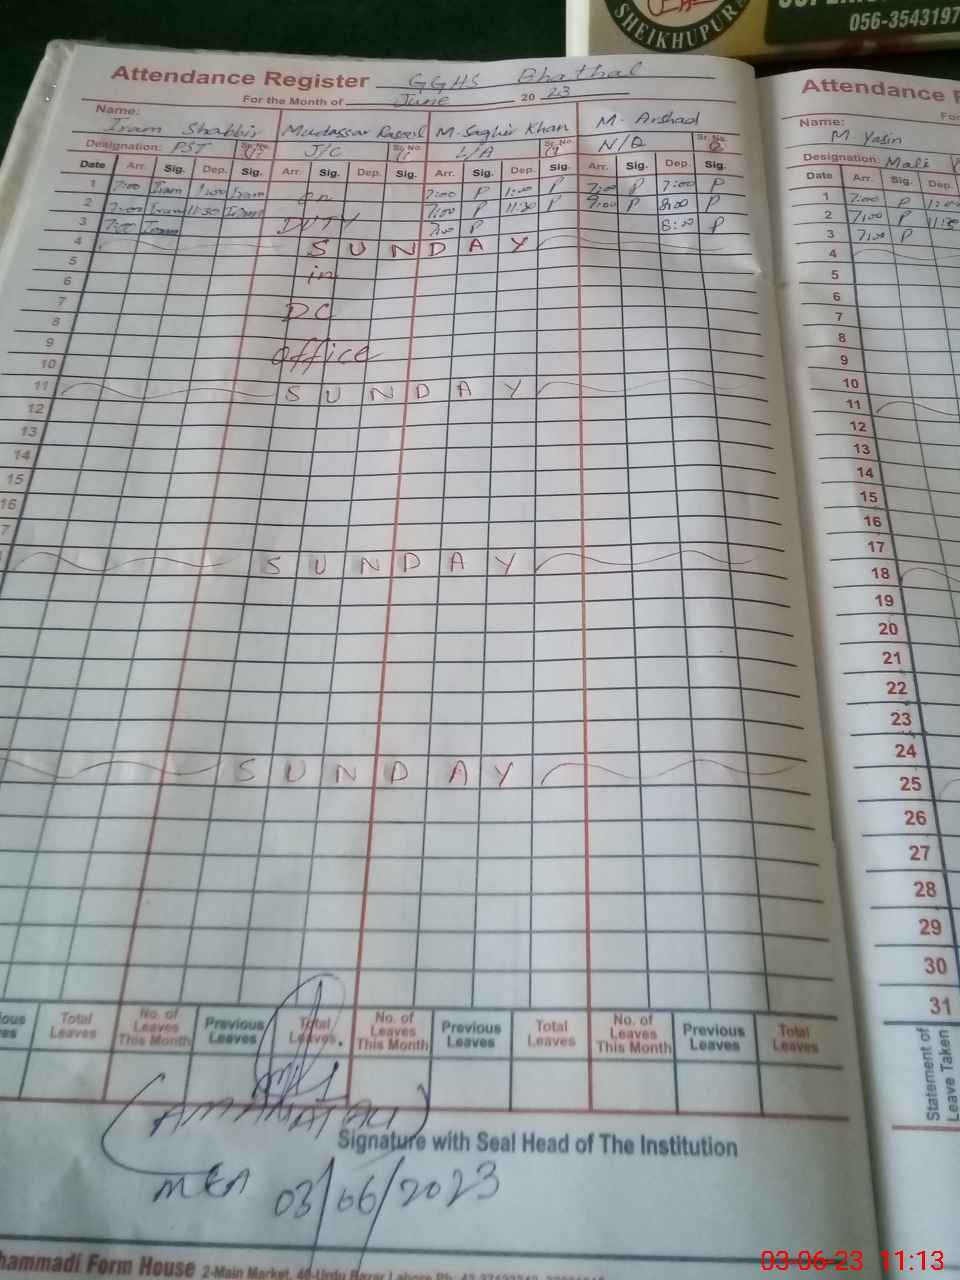 SHEIKHUPURA
056-3543197
Attendance Register GGHS Bhathal
For the Month of June 20 23
Name: Iram Shabbir Mudassar Rasool M. Saghir Khan M. Arshad
Designation: PST Sr. No. J/C Sr. No. L/A Sr. No. N/Q Sr. No.
Date Arr. Sig. Dep. Sig. Arr. Sig. Dep. Sig. Arr. Sig. Dep. Sig. Arr. Sig. Dep. Sig.
1 7:00 Iram 1:00 Iram on 7:00 P 1:00 P 7:00 P 7:00 P
2 7:00 Iram 11:30 Iram 7:00 P 11:30 P 7:00 P 8:00 P
3 7:00 Iram DUTY 7:00 P 8:00 P
4 SUNDAY
5 in
6
7 DC
8
9 office
10
11 SUNDAY
12
13
14
15
16
7
SUNDAY
SUNDAY
Total Leaves No. of Leaves This Month Previous Leaves Total Leaves. No. of Leaves This Month Previous Leaves Total Leaves No. of Leaves This Month Previous Leaves Total Leaves
Signature with Seal Head of The Institution
MEA 03/06/2023
hammadi Form House 2-Main Market, 40-Urdu Bazar Lahore
Attendance
Name:
M. Yasin
Designation: Mali
Date Arr. Sig. Dep.
1 7:00 P
2 7:00 P
3 7:00 P
4
5
6
7
8
9
10
11
12
13
14
15
16
17
18
19
20
21
22
23
24
25
26
27
28
29
30
31
Statement of
Leave Taken
03-06-23 11:13